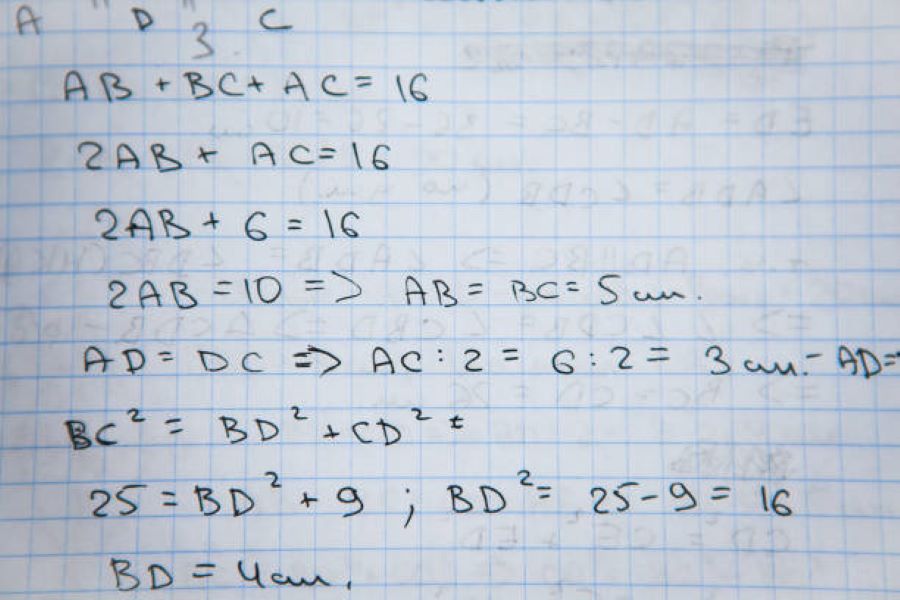 A " D " C
3.
AB + BC + AC = 16
2AB + AC = 16
2AB + 6 = 16
2AB = 10 => AB = BC = 5 см.
AD = DC => AC : 2 = 6 : 2 = 3 см. - AD =
BC² = BD² + CD²
25 = BD² + 9 ; BD² = 25 - 9 = 16
BD = 4 см.